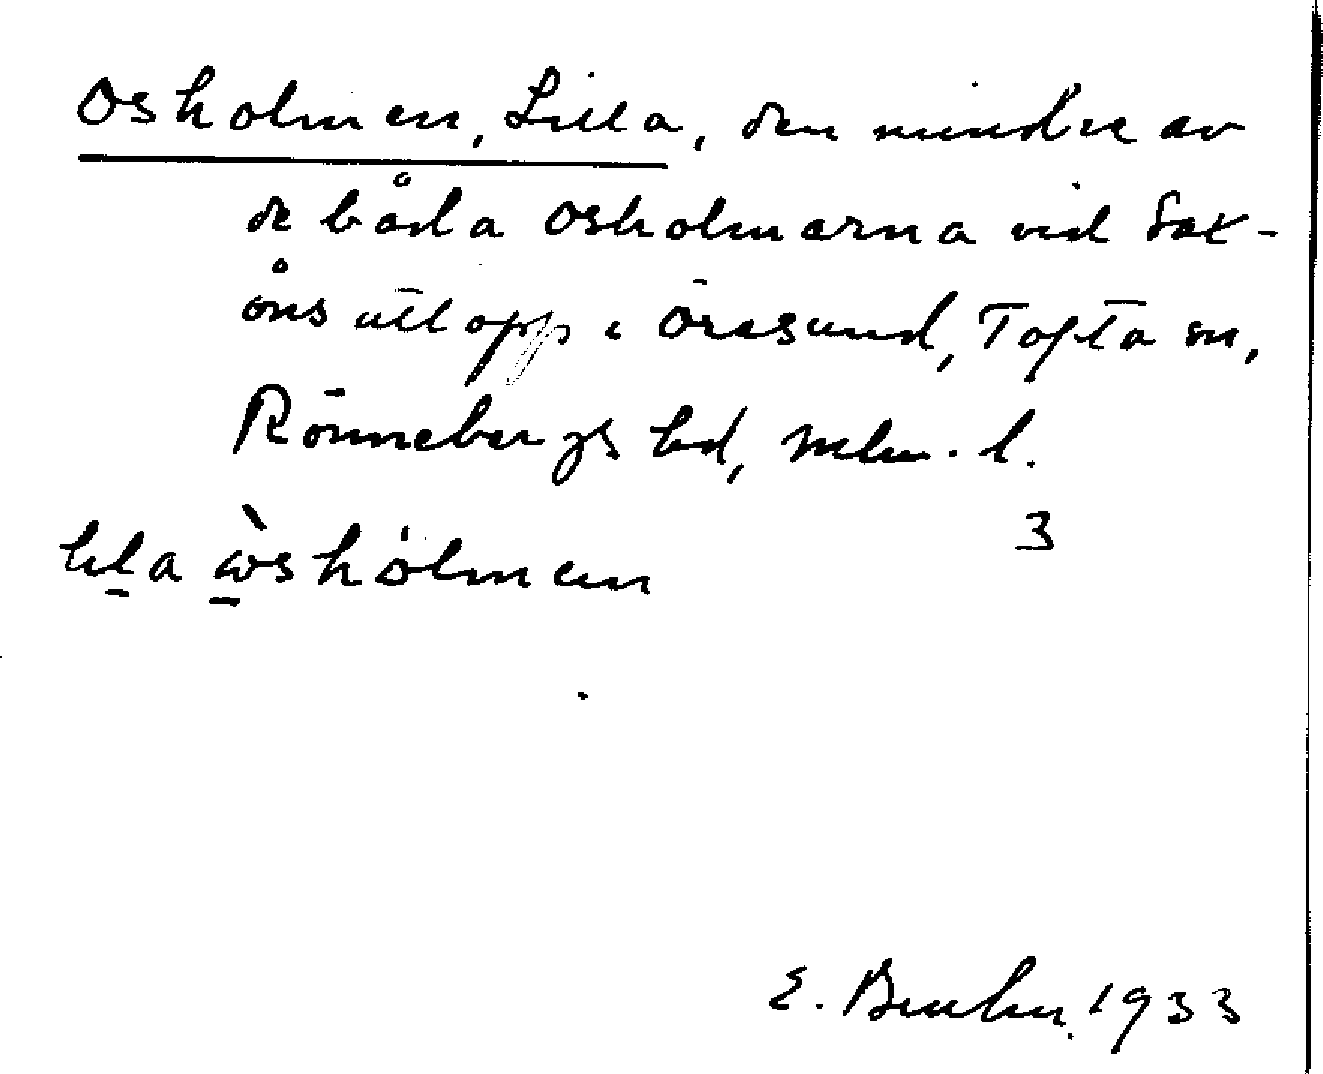 Osholmen, Lilla, den mindre av
de båda Osholmarna vid Sax-
åns utlopp i Öresund, Tofta sn,
Rönnebergs hd, Mlm. l.
3
lila
E. Bruhn 1933